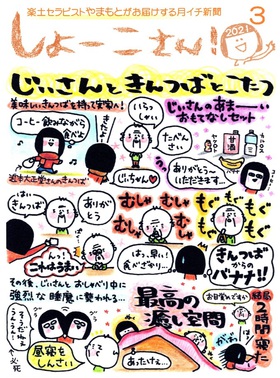 楽土セラピストやまもとがお届けする月イチ新聞
しょーこさん!
2021
3
じいさんときんつばとこたつ
美味しいきんつばを持って実家へ!
コーヒー飲みながら食べよ
きたよ
いらっしゃい
じいさんのあまーい
おもてなしセット
たべんさい
ヤクルト
カルピス
甘酒
ありがとう〜
いただきまーす…
じいちゃん♡
はい
きんつば
ありがとう
むしゃ
むしゃ
もぐ
もぐ
もぐ
もぐ
むっ!
こりゃうまい
はっ、早い!
食べざかり…
きんつば
からの
バナナ!!
その後、じいさんとおしゃべり中に
強烈な睡魔に襲われる…
昼寝を
しんさい
最高の
癒し空間
あったけぇ…
お目覚ですか
結局
2時間寝た